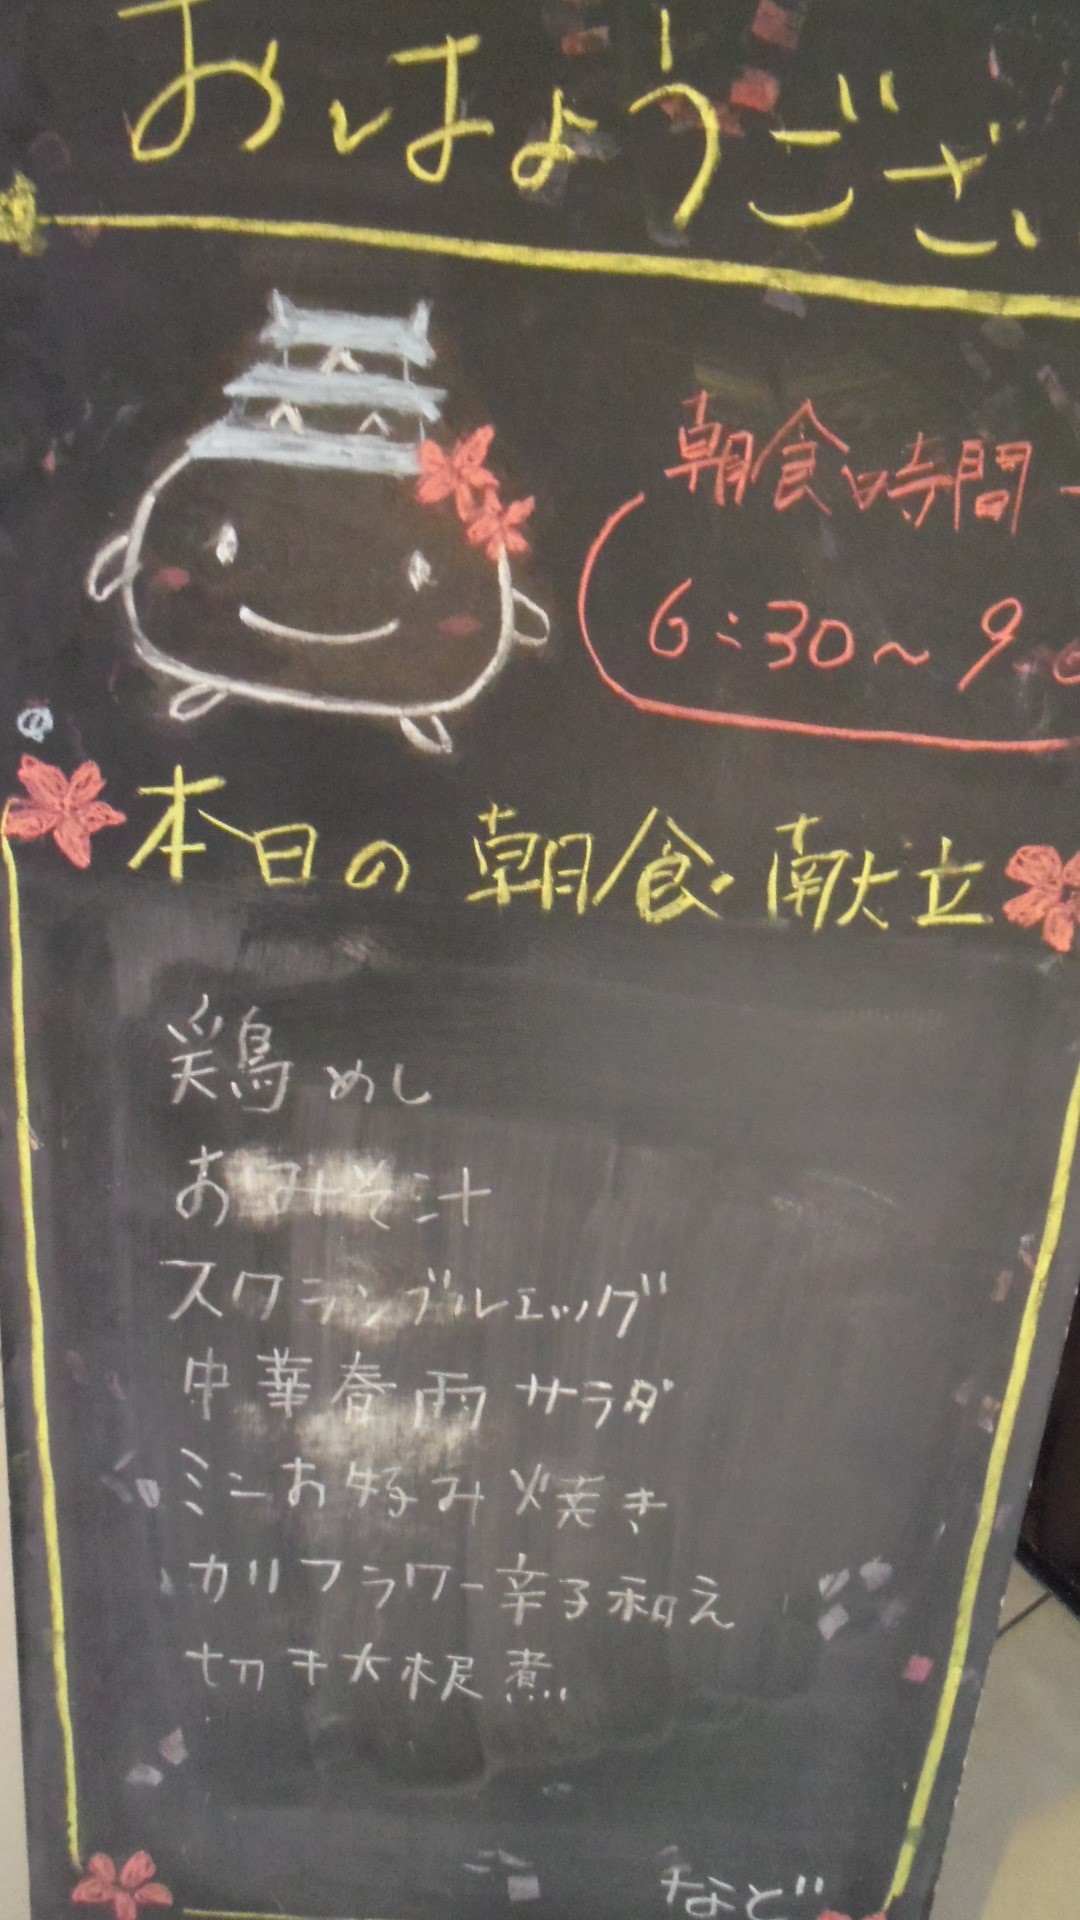 おはようござ
朝食時間
6:30~9
本日の朝食献立
鶏めし
おみそ汁
スクランブルエッグ
中華春雨サラダ
ミニお好み焼き
カリフラワー辛子和え
切干大根煮
など